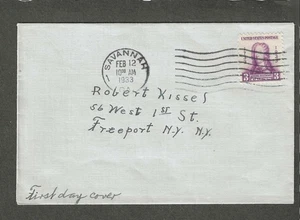 SAVANNAH
FEB 12
10 AM
1933
GA.
UNITED STATES POSTAGE
3
Robert Kissel
56 West 1st St.
Freeport N.Y. N.Y.
First day cover